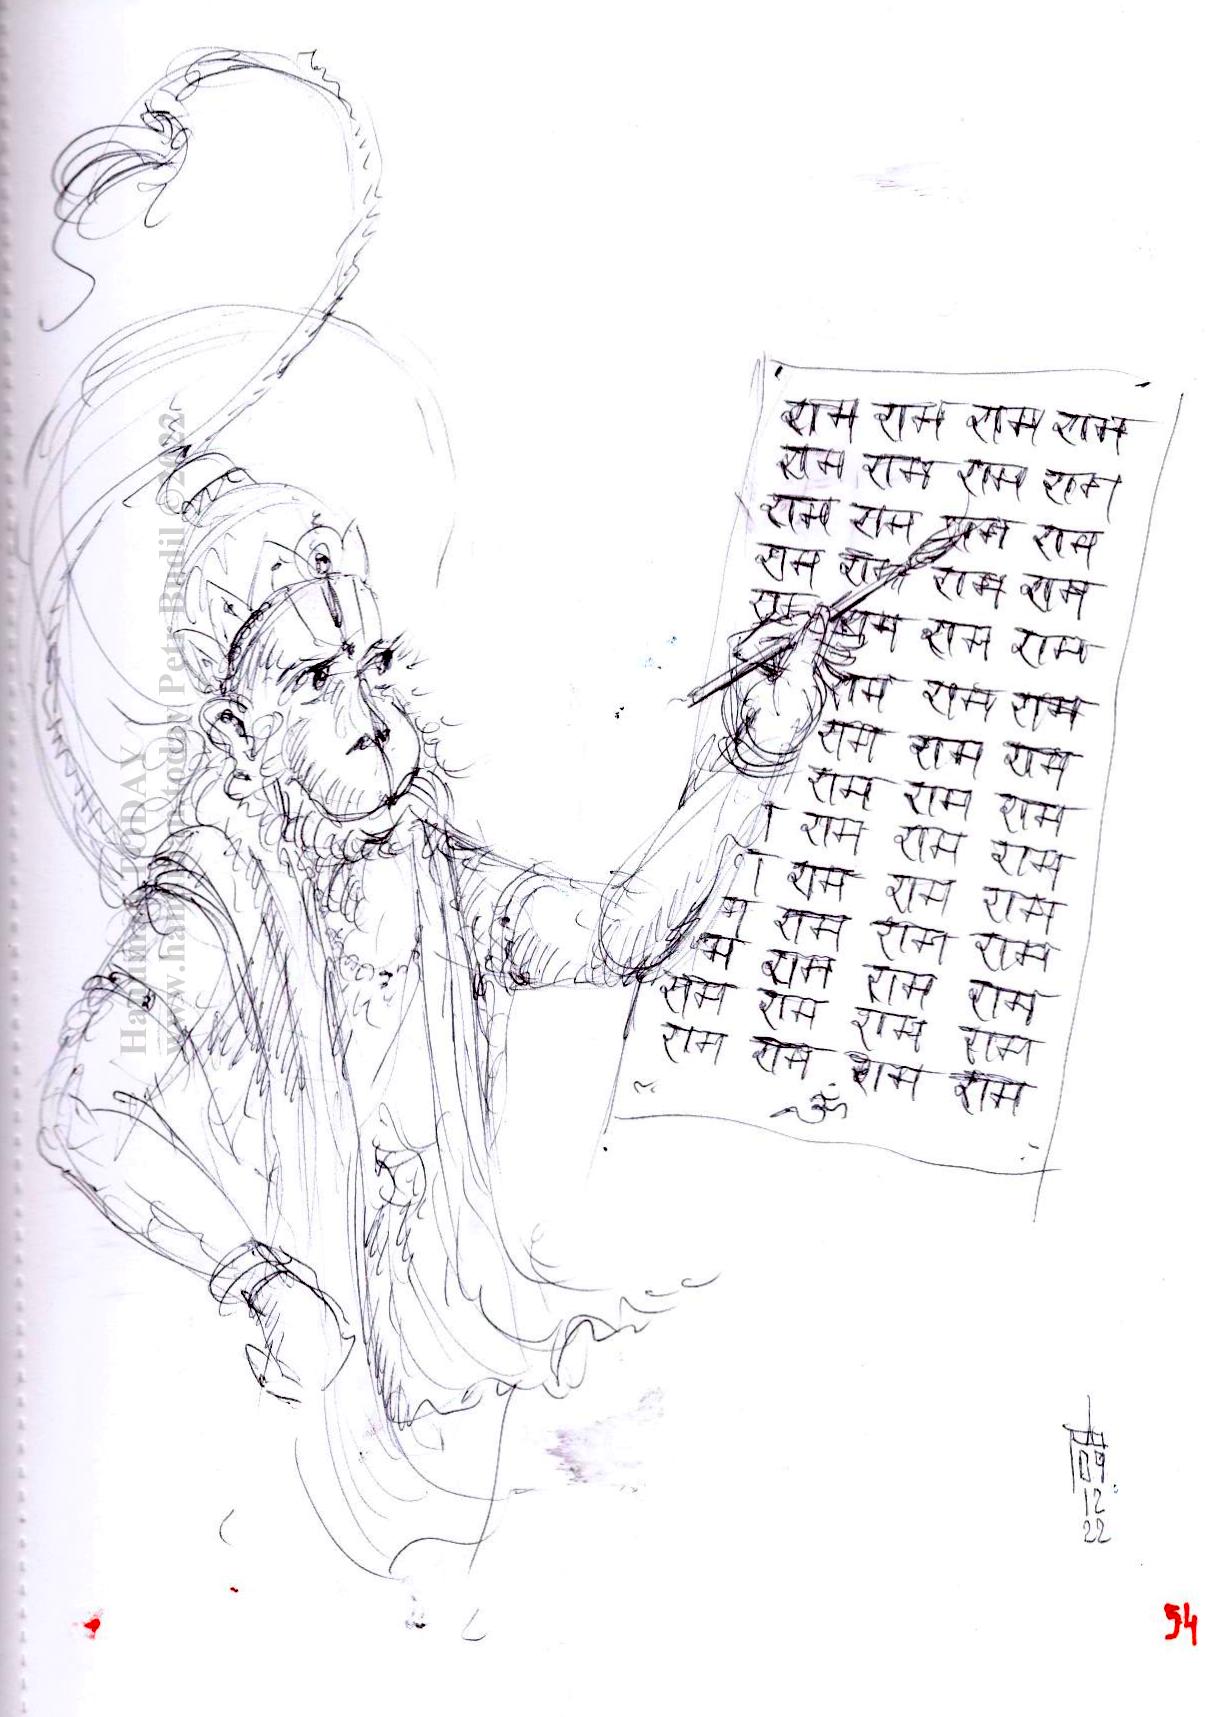 राम राम राम राम
राम राम राम राम
राम राम राम राम
राम राम राम राम
राम राम राम राम
राम राम राम
राम राम राम
राम राम राम
राम राम राम
राम राम राम
राम राम राम
म राम राम राम
राम राम राम राम
राम राम राम राम
ॐ
Hanuman TODAY
www.hanumantoday Petr Budil © 2022
09
12
22
54